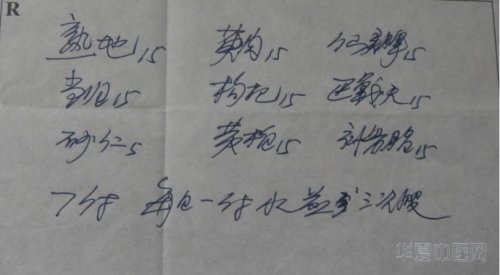 R
熟地15 萸肉15 仙灵脾15
当归15 枸杞15 巴戟天15
砂仁5 黄柏15 15
7付 每日一付 水煎 三次服
华夏中医网